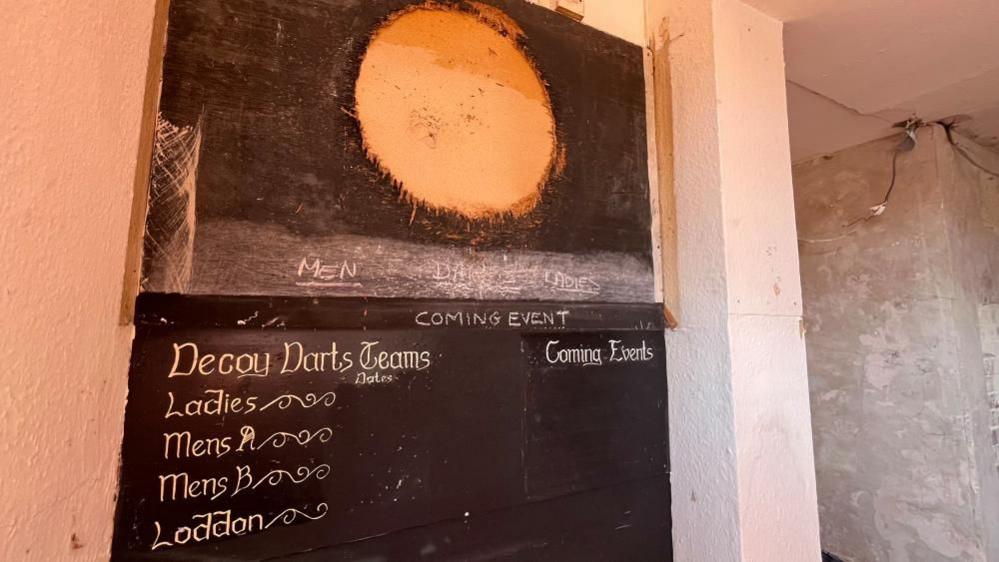 MEN LADIES
COMING EVENT
Decoy Darts Teams
Dates
Coming Events
Ladies
Mens A
Mens B
Loddon